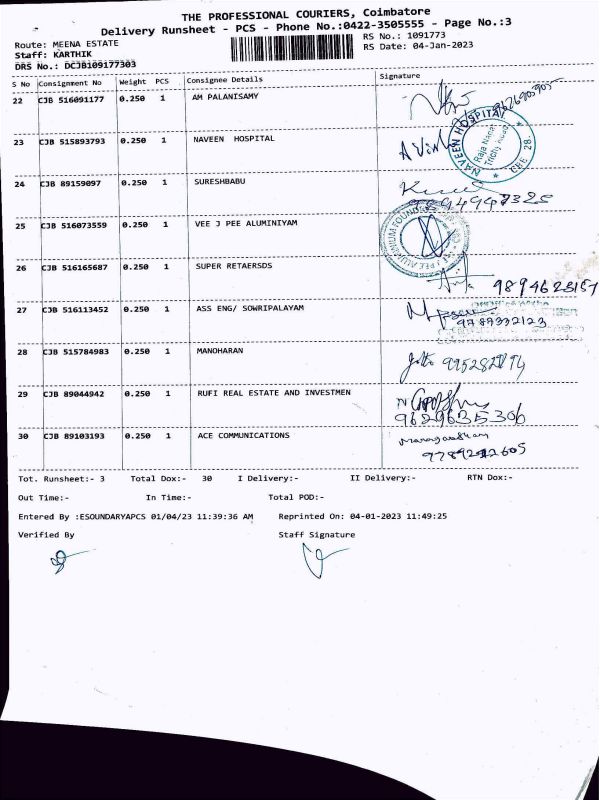 THE PROFESSIONAL COURIERS, Coimbatore
Delivery Runsheet - PCS - Phone No.:0422-3505555 - Page No.:3
Route: MEENA ESTATE
RS No.: 1091773
Staff: KARTHIK
RS Date: 04-Jan-2023
DRS No.: DCJB109177303
S No Consignment No Weight PCS Consignee Details Signature
22 CJB 516091177 0.250 1 AM PALANISAMY
23 CJB 515893793 0.250 1 NAVEEN HOSPITAL
NAVEEN HOSPITAL
24 CJB 89159097 0.250 1 SURESHBABU
25 CJB 516073559 0.250 1 VEE J PEE ALUMINIYAM
26 CJB 516165687 0.250 1 SUPER RETAERSDS
9894623157
27 CJB 516113452 0.250 1 ASS ENG/ SOWRIPALAYAM
9789332123
28 CJB 515784983 0.250 1 MANOHARAN
29 CJB 89044942 0.250 1 RUFI REAL ESTATE AND INVESTMEN
9629635306
30 CJB 89103193 0.250 1 ACE COMMUNICATIONS
Tot. Runsheet:- 3 Total Dox:- 30 I Delivery:- II Delivery:- RTN Dox:-
Out Time:- In Time:- Total POD:-
Entered By :ESOUNDARYAPCS 01/04/23 11:39:36 AM Reprinted On: 04-01-2023 11:49:25
Verified By Staff Signature